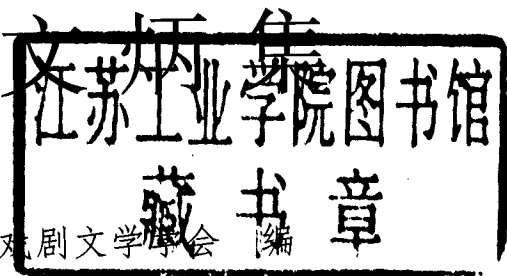 文炳集
江苏工业学院图书馆
藏书章
戏剧文学学会 编